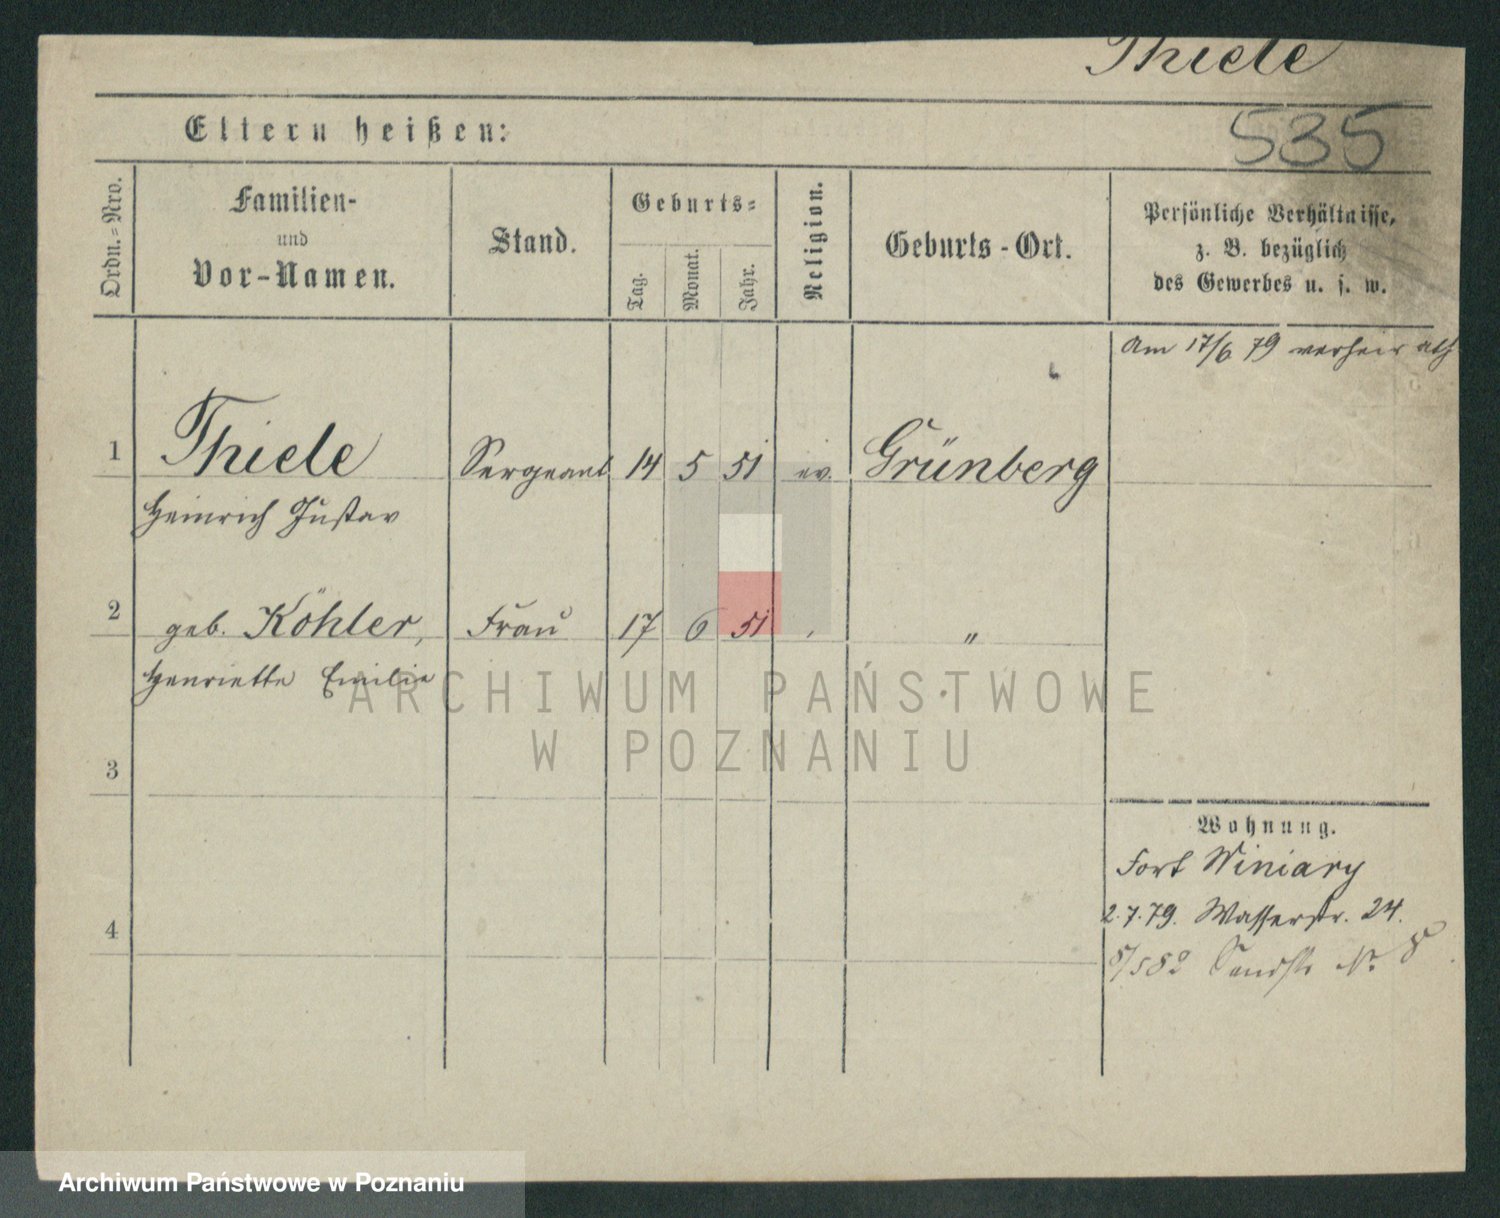 Thiele
535
Eltern heißen:
Ordn.=Nro.
Familien-
und
Vor-Namen.
Stand.
Geburts=
Tag.
Monat.
Jahr.
Religion.
Geburts-Ort.
Persönliche Verhältnisse,
z. B. bezüglich
des Gewerbes u. s. w.
am 17/6 79 verheirath
1 Thiele Sergeant 14 5 51 ev. Grünberg
Heinrich Gustav
2 geb. Köhler, Frau 17 6 51 "
Henriette Emilie
3
Wohnung.
Fort Winiary
4
2.7.79. Wasserstr. 24.
Sandstr No. 8
ARCHIWUM PAŃSTWOWE
W POZNANIU
Archiwum Państwowe w Poznaniu